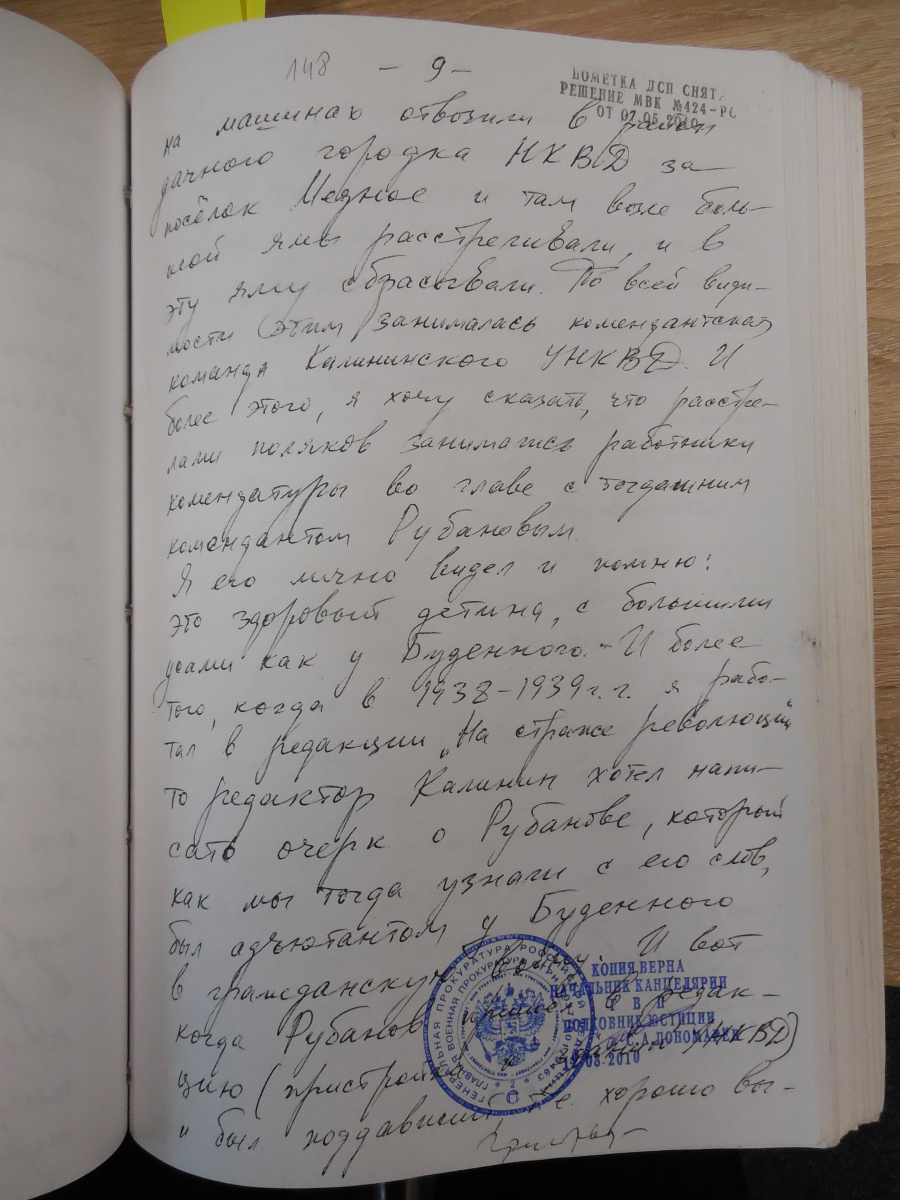 148
- 9 -
ПОМЕТКА ДСП СНЯТ
РЕШЕНИЕ МВК №424-РС
ОТ 07.05.2010
на машинах отвозили в район
дачного городка НКВД за
посёлок Медное и там возле боль-
шой ямы расстреливали, и в
эту яму сбрасывали. По всей види-
мости этим занималась комендантская
команда Калининского УНКВД. И
более этого, я хочу сказать, что расстре-
лами поляков занимались работники
комендатуры во главе с тогдашним
комендантом Рубановым.
Я его лично видел и помню:
это здоровый детина, с большими
усами как у Буденного. - И более
того, когда в 1938-1939 г.г. я рабо-
тал в редакции „На страже революции"
то редактор Калинин хотел напи-
сать очерк о Рубанове, который
как мы тогда узнали с его слов,
был адъютантом у Буденного
в гражданскую войну. И вот
когда Рубанов пришел в редак-
цию (пристройка к зданию УНКВД)
и был поддавший т.е. хорошо вы-
КОПИЯ ВЕРНА
НАЧАЛЬНИК КАНЦЕЛЯРИИ
ПОЛКОВНИК ЮСТИЦИИ
С.А.ПОНОМАРЕВ
08.2010
ГЕНЕРАЛЬНАЯ ПРОКУРАТУРА РОССИЙСКОЙ ФЕДЕРАЦИИ
ГЛАВНАЯ ВОЕННАЯ ПРОКУРАТУРА